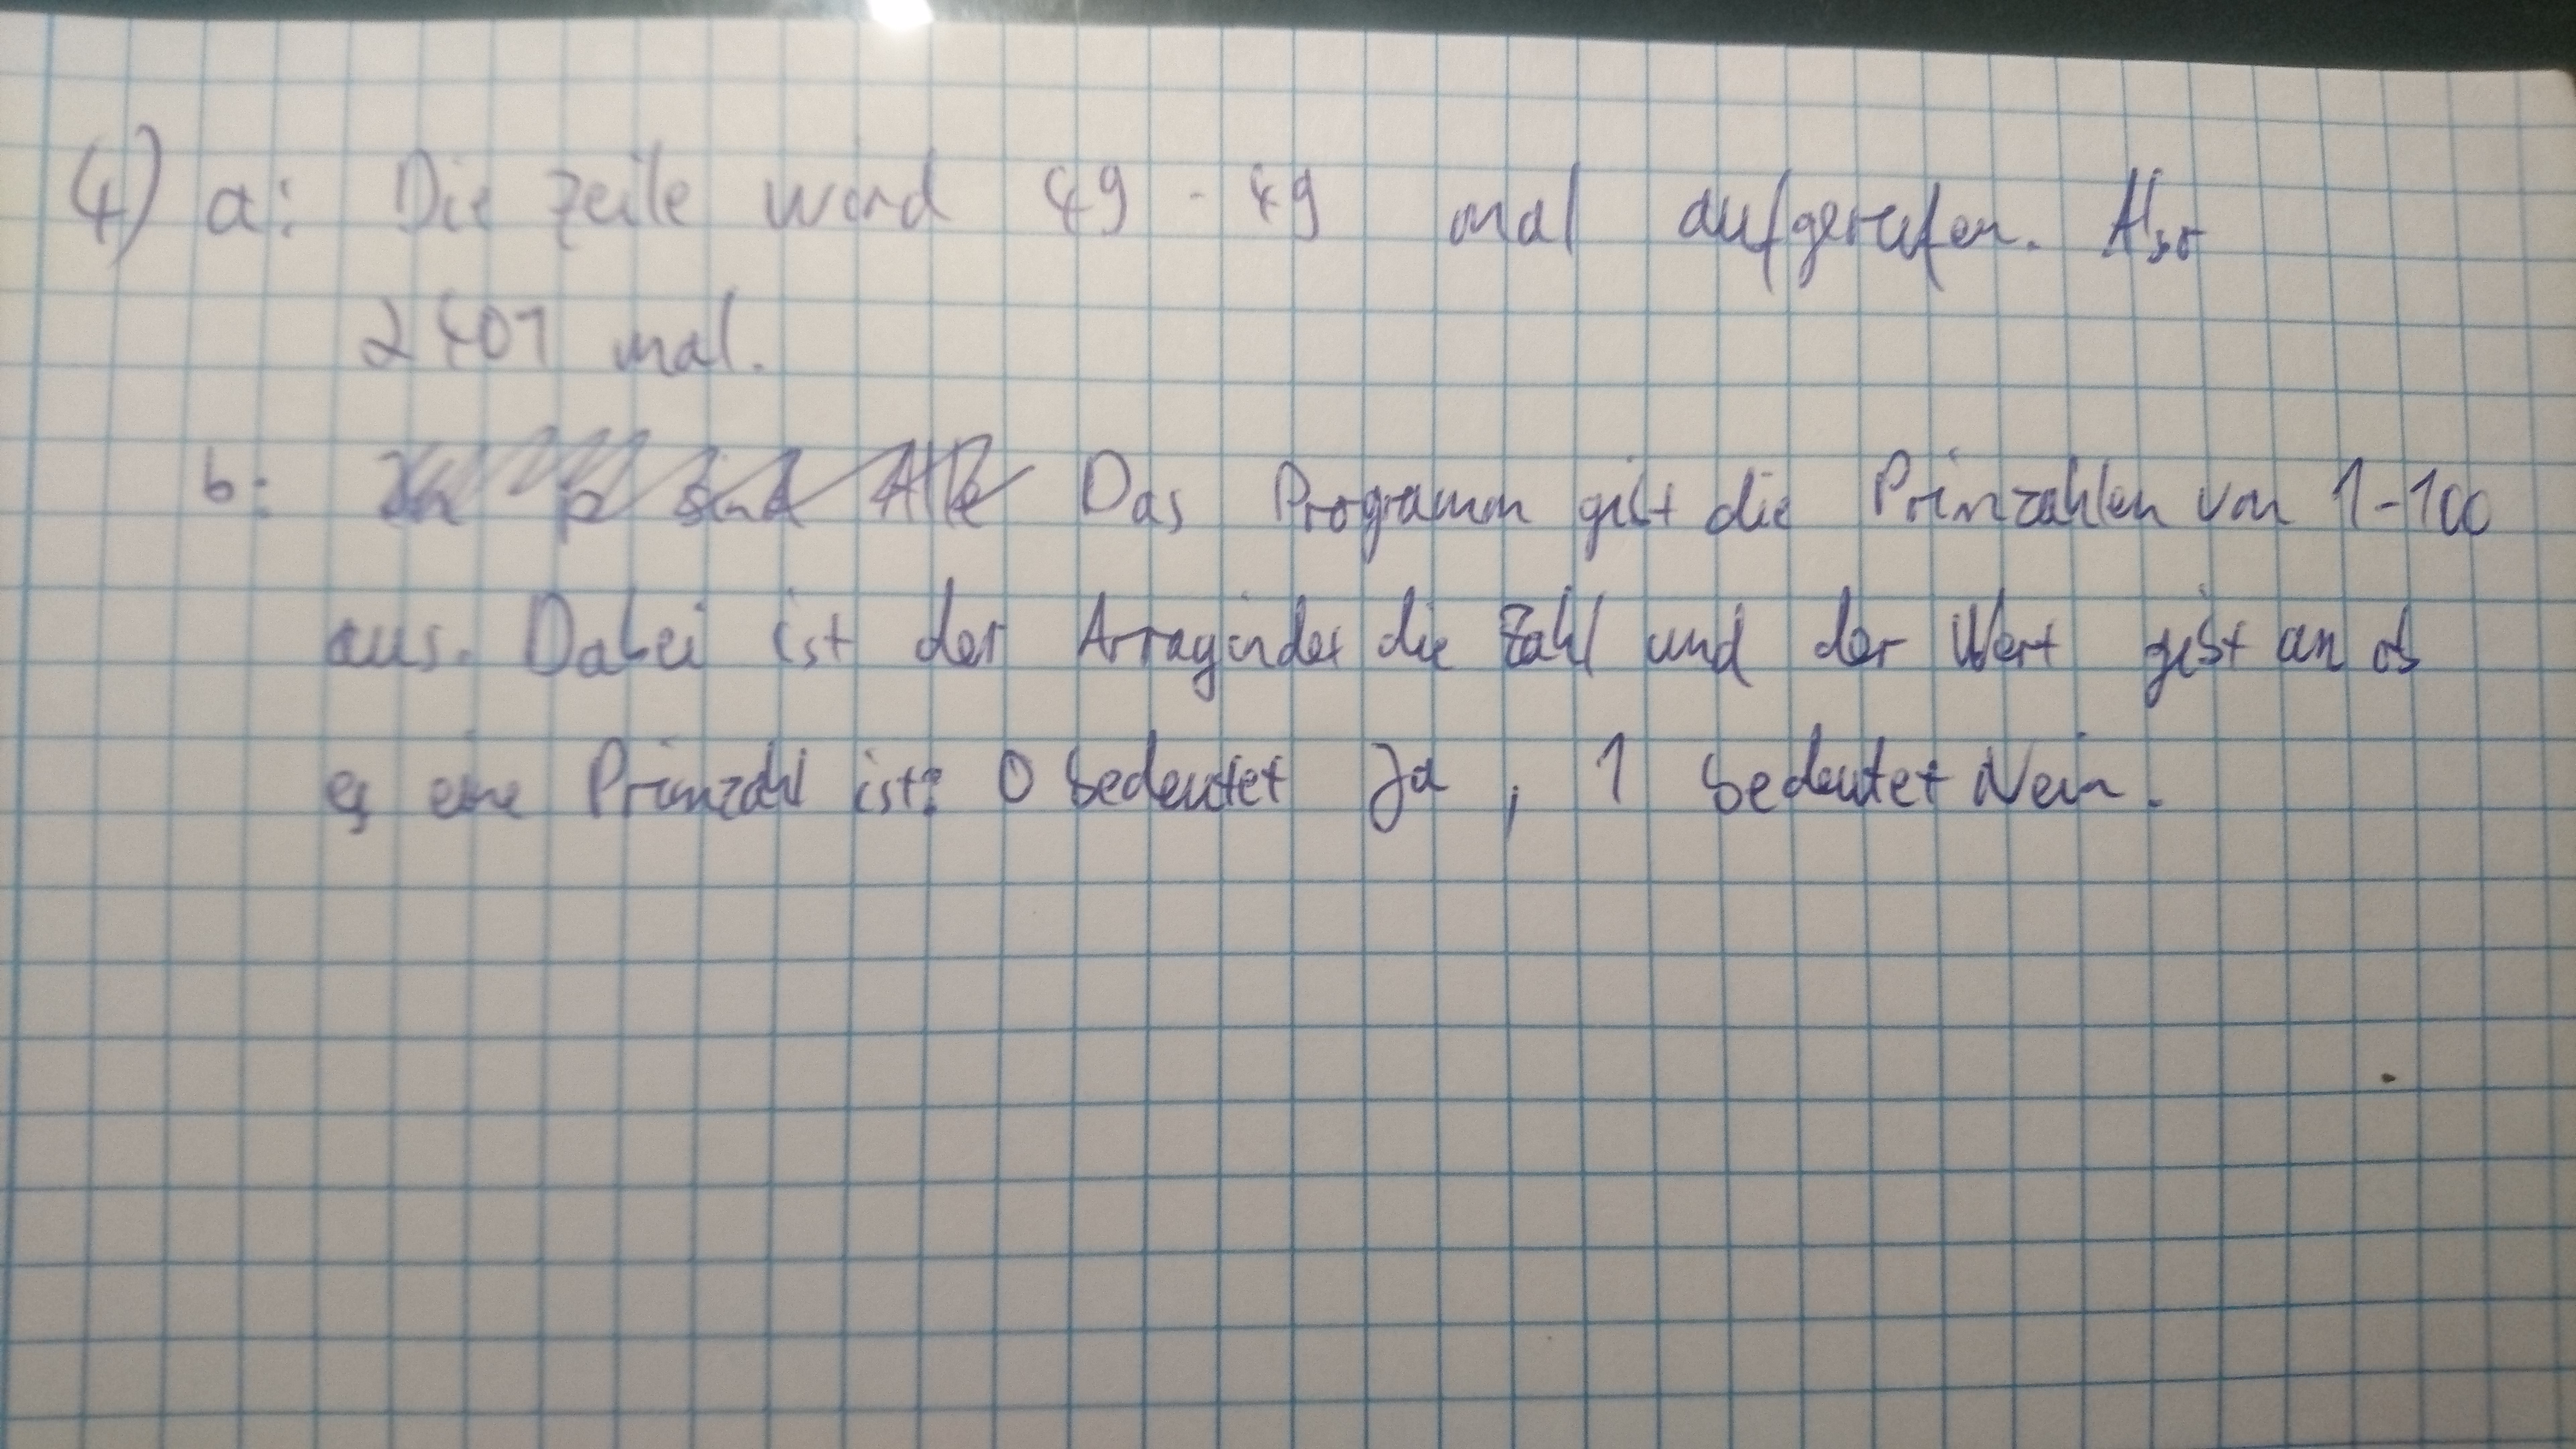 4) a: Die Zeile wird 49 · 49 mal aufgerufen. Also
2401 mal.
b: Das Programm gibt die Primzahlen von 1-100
aus. Dabei ist der Arrayindex die Zahl und der Wert gibt an ob
es eine Primzahl ist: 0 bedeutet Ja, 1 bedeutet Nein.